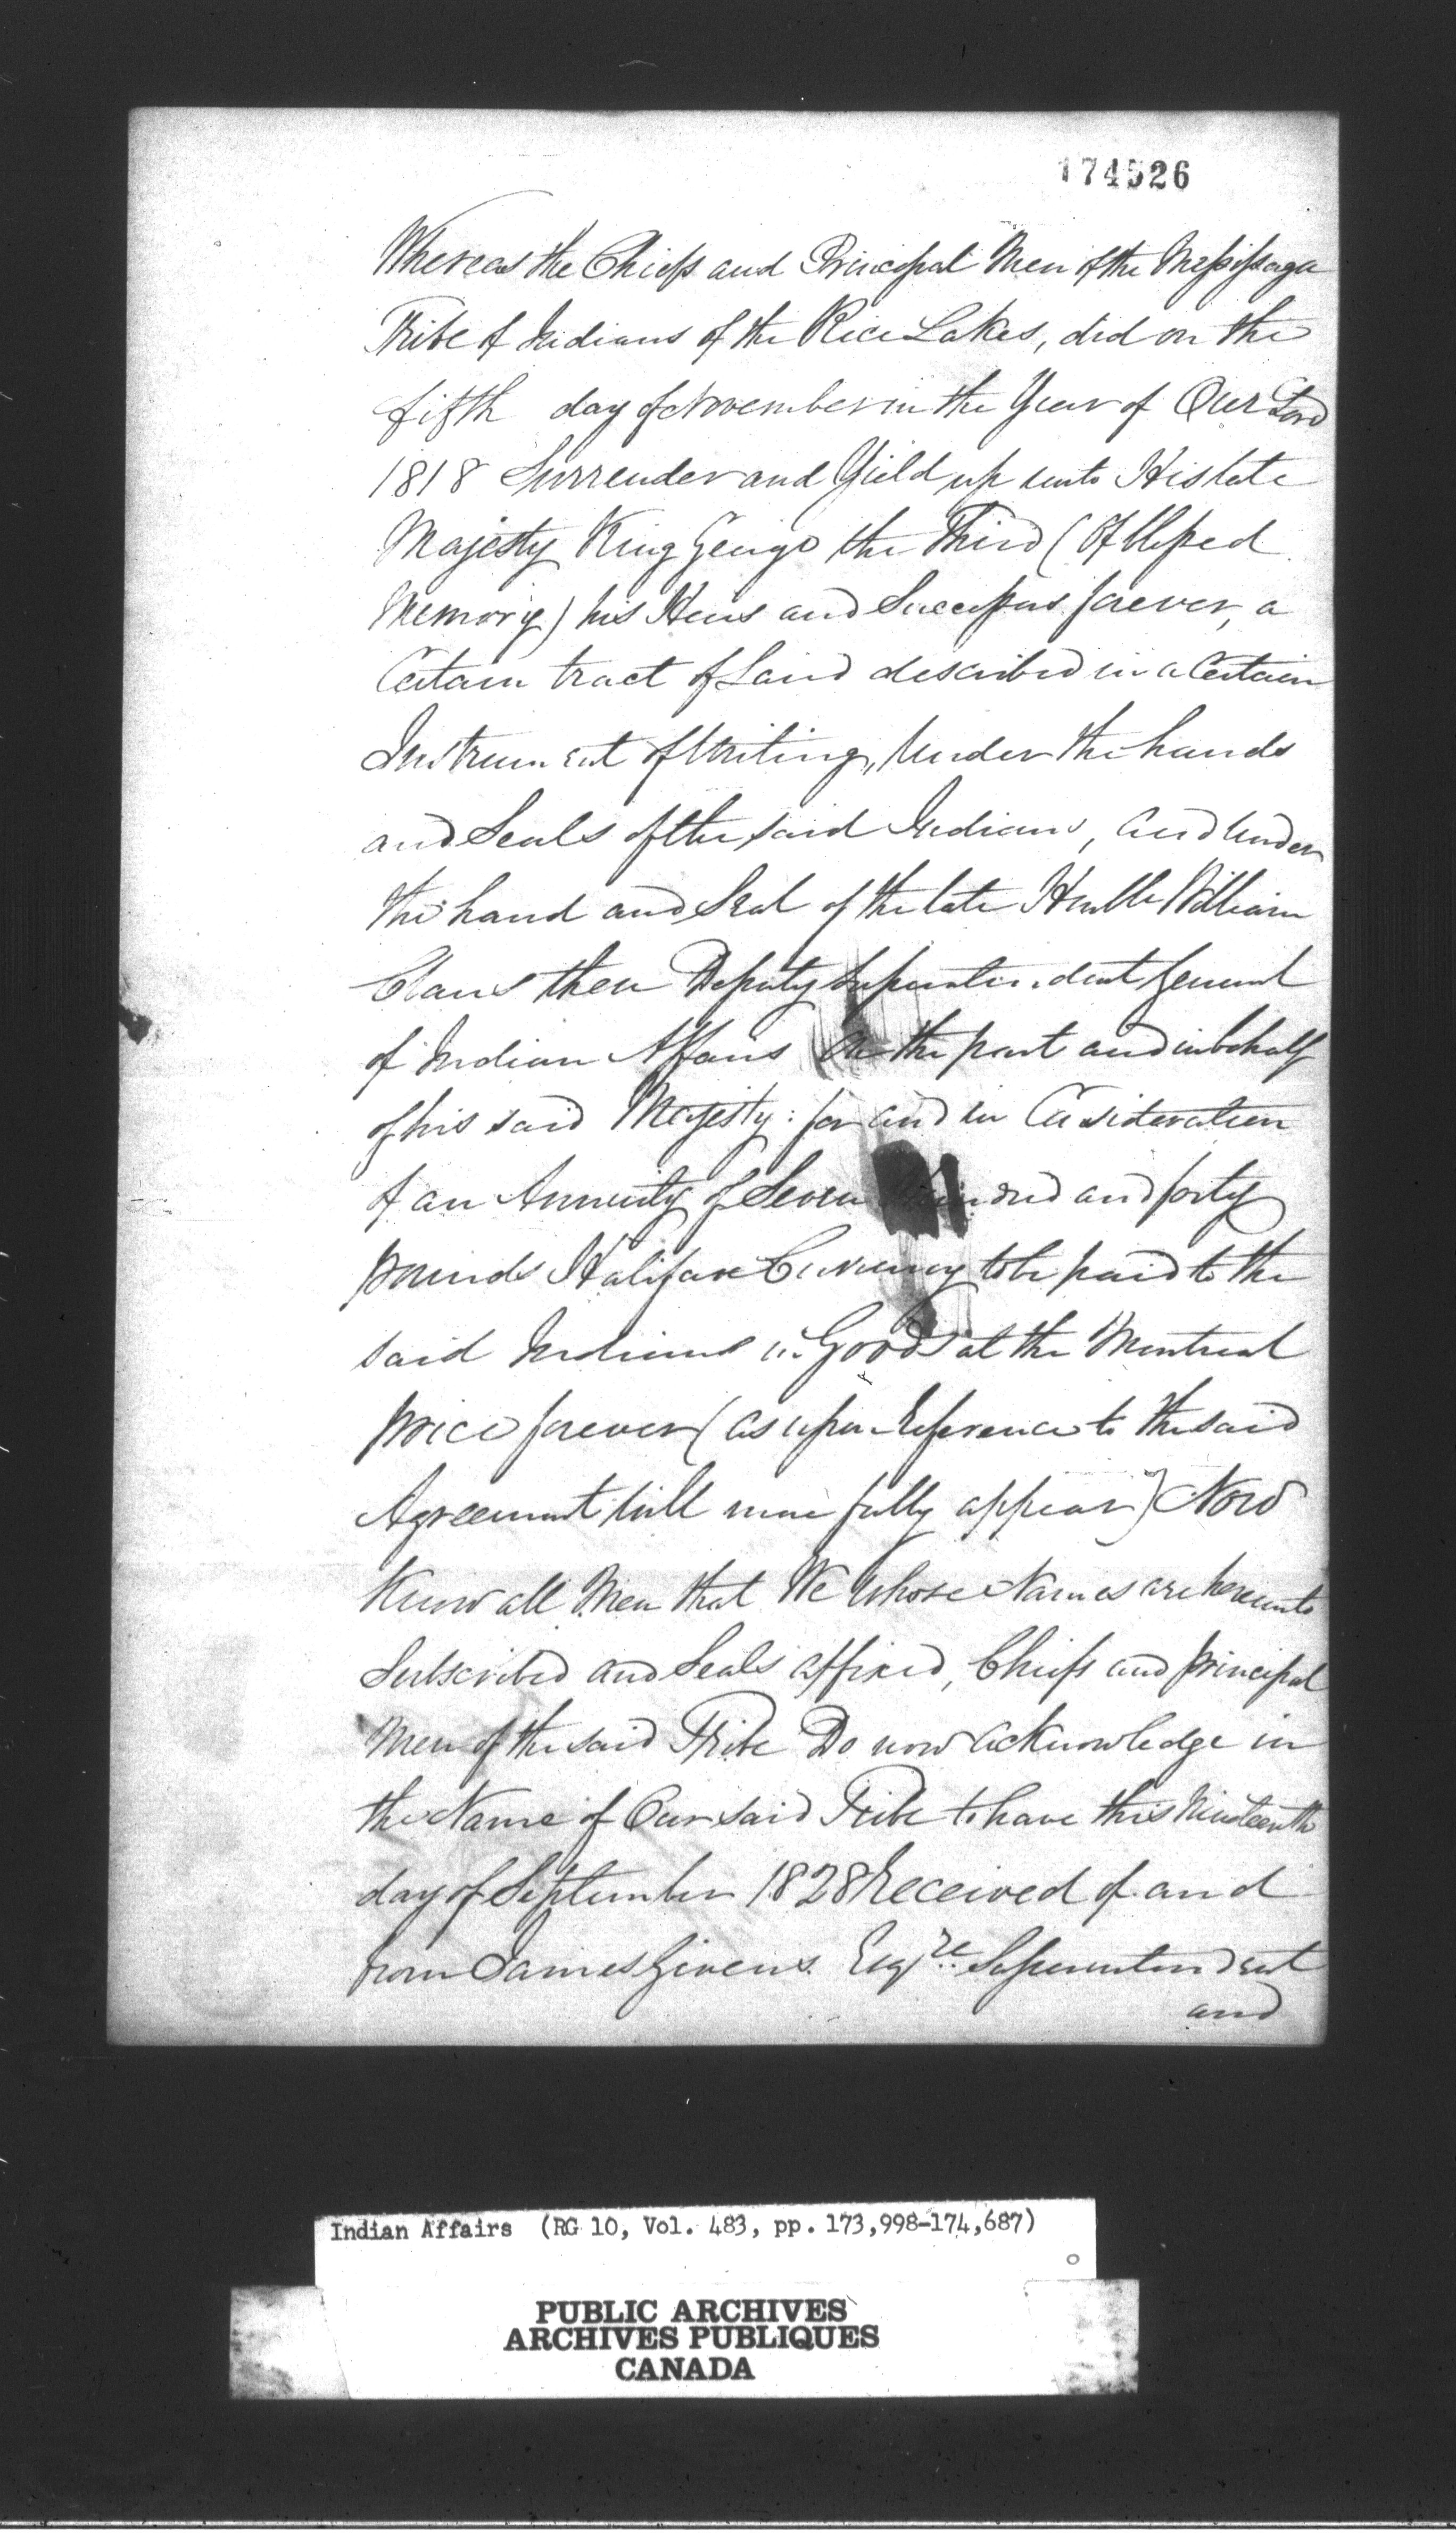 174526
Whereas the Chiefs and Principal Men of the Messissaga
Tribe of Indians of the Rice Lakes, did on the
fifth day of November in the Year of Our Lord
1818 Surrender and Yield up unto His late
Majesty King George the Third (Of Blessed
Memory) his Heirs and Successors forever, a
Certain tract of Land described in a Certain
Instrument of Writing, Under the hands
and Seals of the said Indians, and Under
the hand and Seal of the late Honble William
Claus then Deputy Superintendent General
of Indian Affairs on the part and in behalf
of his said Majesty: for and in Consideration
of an Annuity of Seven Hundred and forty
pounds Halifax Currency to be paid to the
said Indians in Goods at the Montreal
price forever (as upon reference to the said
Agreement will more fully appear) Now
Know all Men that We Whose Names are hereunto
Subscribed and Seals affixed, Chiefs and principal
Men of the said Tribe Do now acknowledge in
the Name of Our said Tribe to have this Nineteenth
day of September 1828 Received of and
from James Givens Esqre. Superintendent
and
Indian Affairs (RG 10, Vol. 483, pp. 173,998-174,687)
PUBLIC ARCHIVES
ARCHIVES PUBLIQUES
CANADA